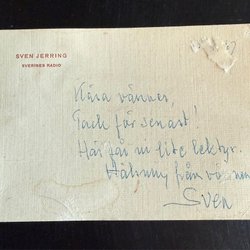 SVEN JERRING
SVERIGES RADIO
Kära vänner,
Tack för senast!
Här får ni lite lektyr.
Hälsning från
Sven